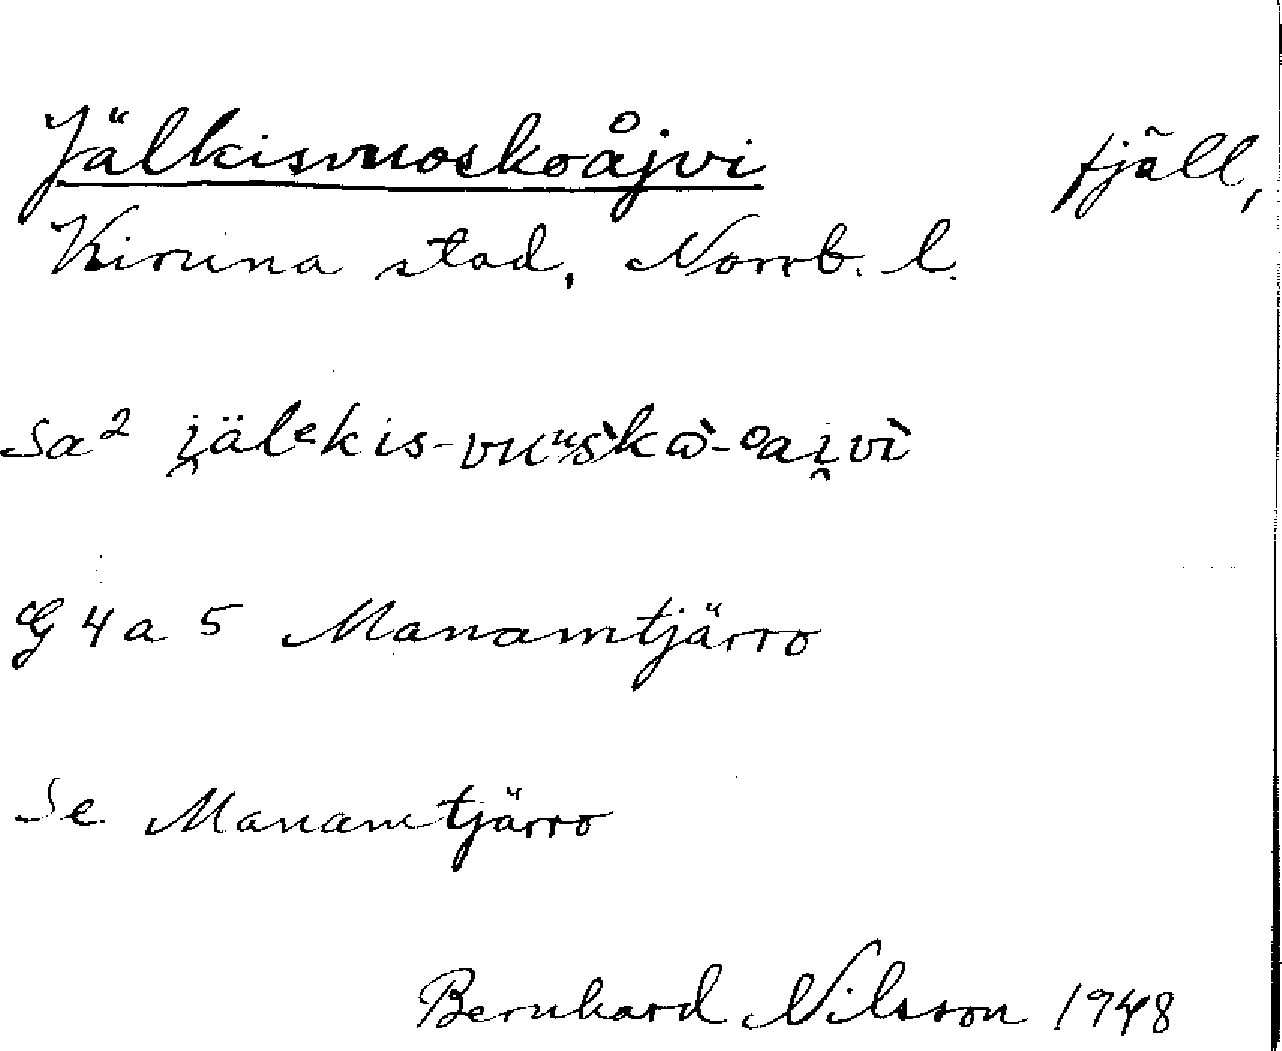 Jälkisvuoskoåjvi fjäll,
Kiruna stad, Norrb. l.
Sa² i̯älᵉkis-vuᵘs̀kὼ-ᵒai̯vì
G 4 a 5 Manamtjärro
Se Manamtjärro
Bernhard Nilsson 1948